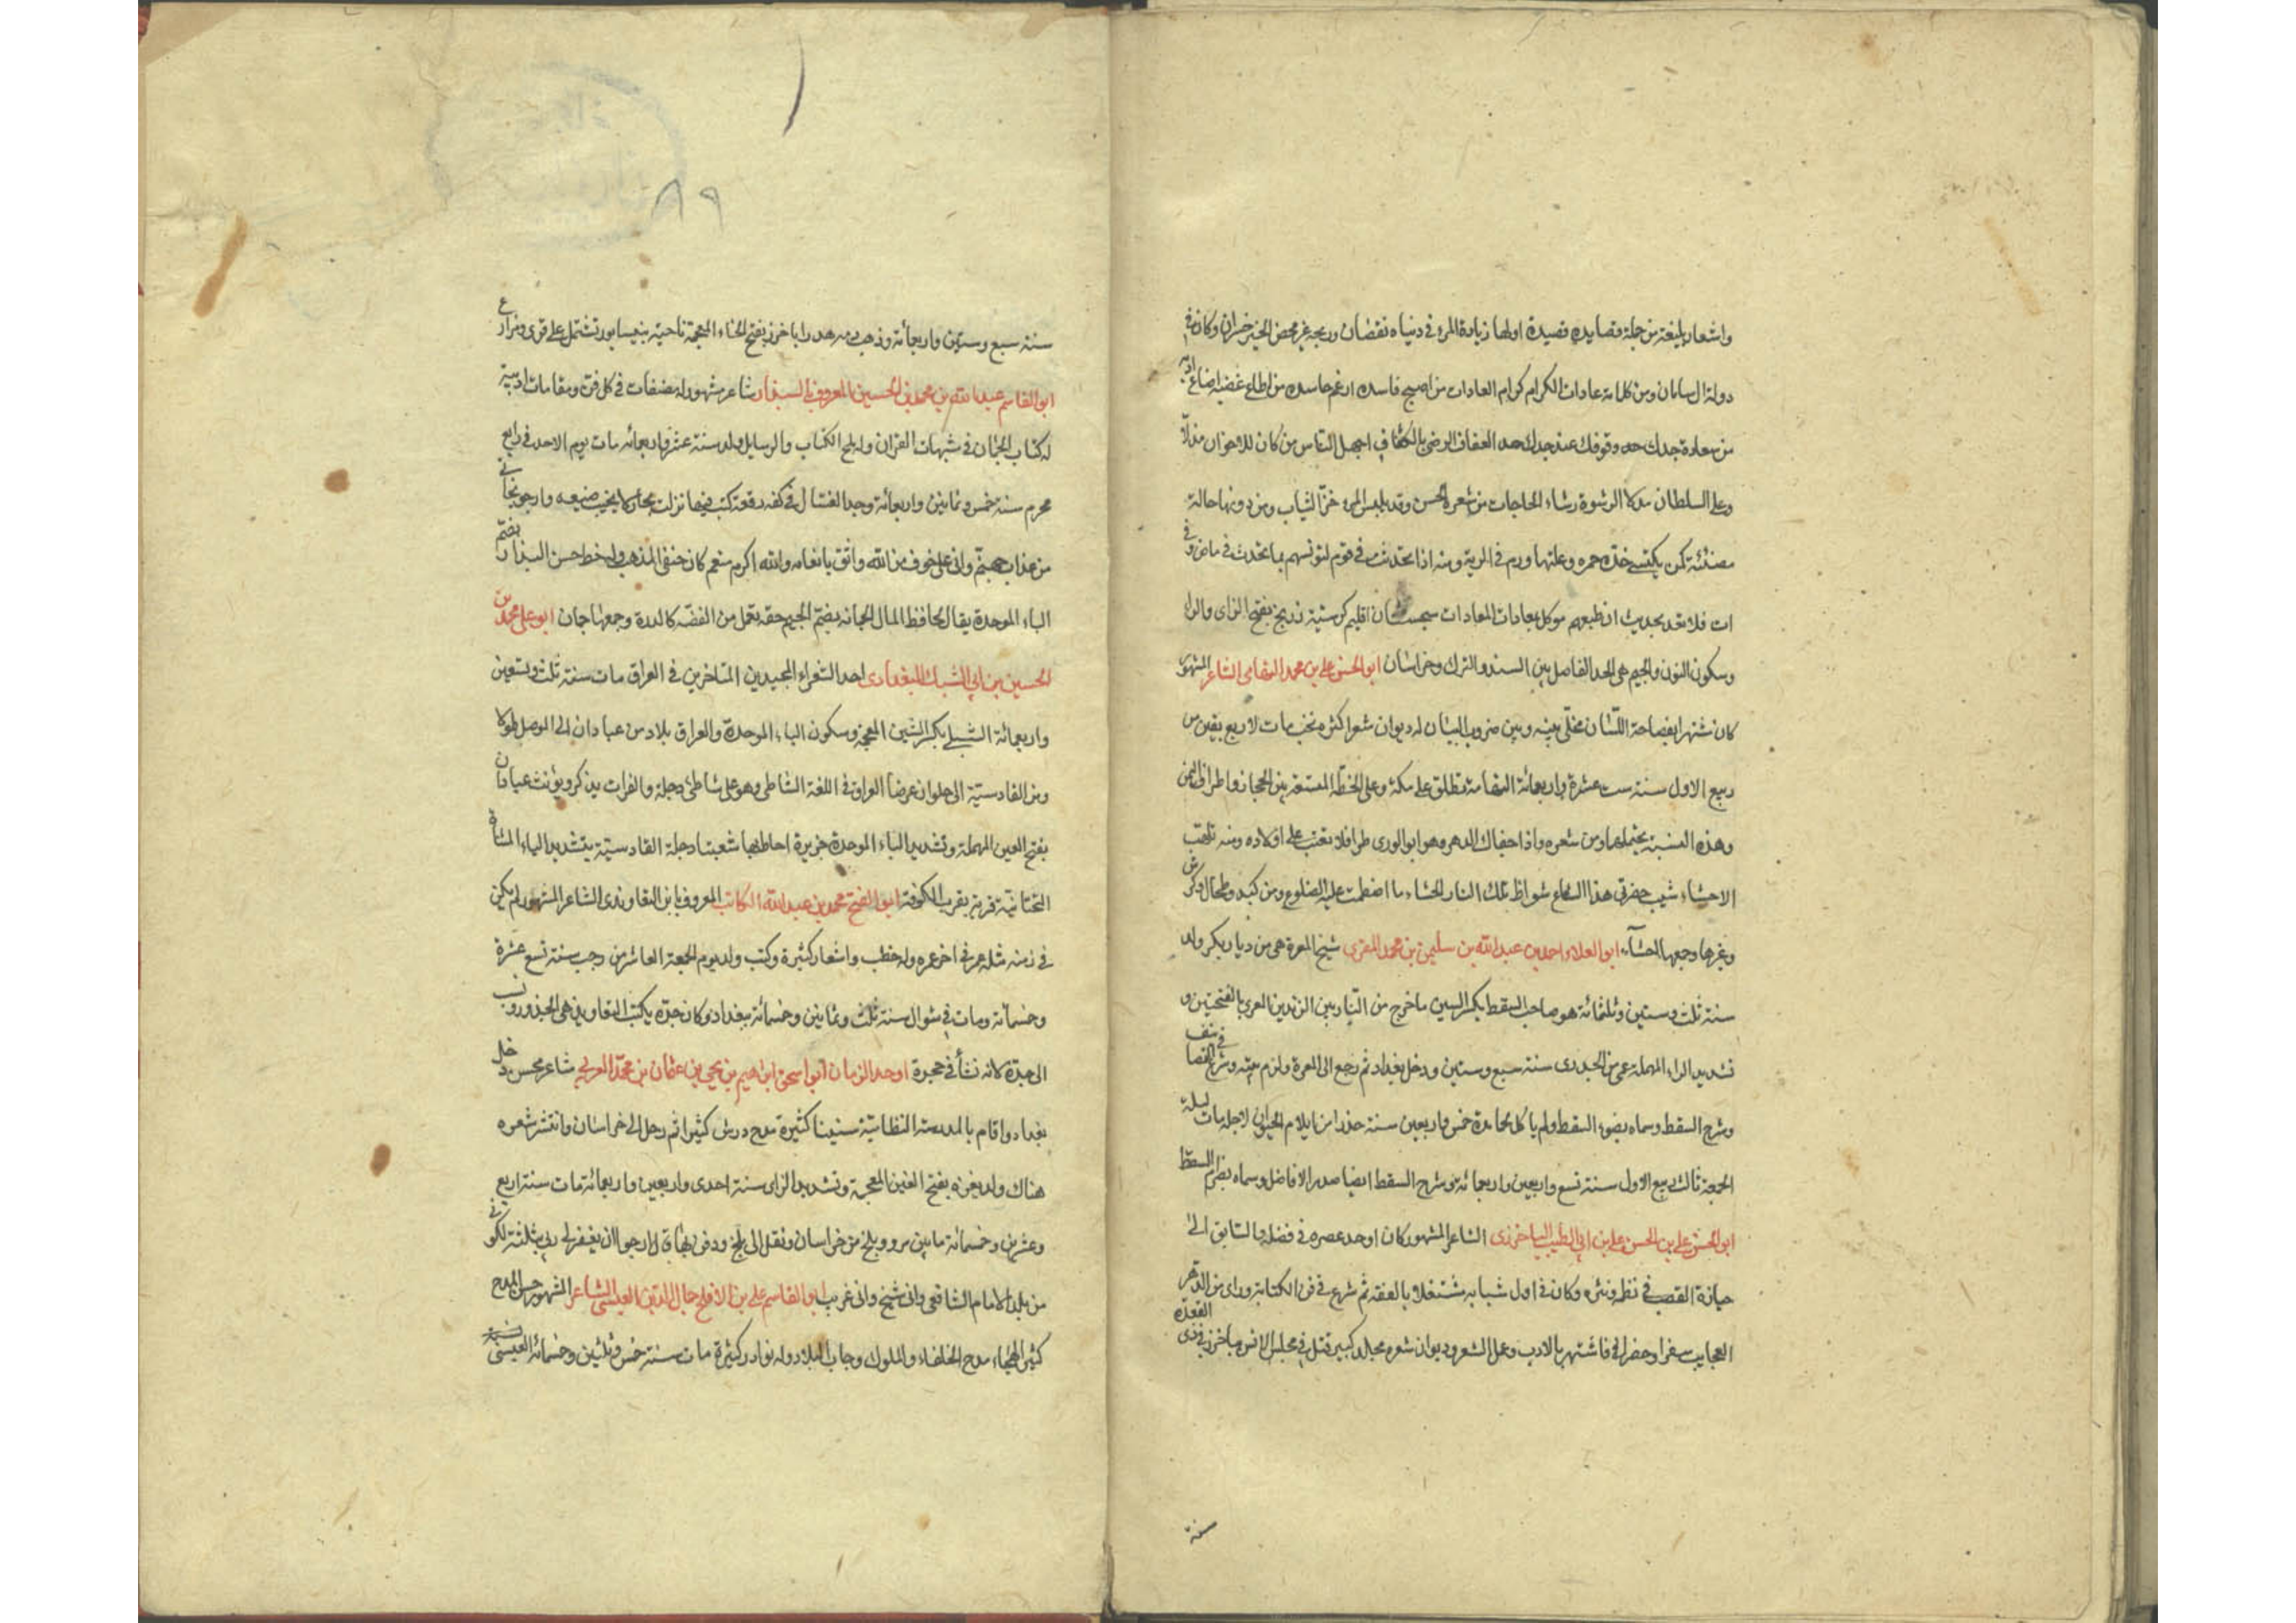 واشعار بليغة من جملة قصايده قصيدة اولها زيادة المرء في دنياه نقصان وربحه غير محض الخير خسران وكان في
دولة ال سامان ومن كلماته عادات الكرام كرام العادات من اصبح فاسده ارغم حاسده من اطاع غضبه اضاع ادبه
من سعادة جدك حد وقوفك عند حدك حد العفاف الرضى بالكفاف اجهل الناس من كان للاخوان مذلا
وعلى السلطان مدلا الرشوة رشاء الحاجات من شعره الحسن وقد يلبس المرء خز الثياب ومن دونها حالة
مضنئة كمن يكتسى خده حمرة وعلتها ورم في الرية ومنه اذا تحدثت في قوم لتونسهم بما تحدث في ماض وفي
ات فلا تعد بحديث ان طبعهم موكل بمعادات المعادات سجستان اقليم كرسيه زرنج بفتح الزاى والراء
وسكون النون والجيم هى الحد الفاصل بين السند والترك وخراسان ابو الحسن على بن محمد التهامى الشاعر المشهور
كان مشتهرا بفصاحة اللسان مخلى بينه وبين ضروب البيان له ديوان شعر اكثره نخب مات لاربع بقين من
ربيع الاول سنة ست عشرة واربعمائة التهامة تطلق على مكة وعلى الخطة المتسعة بين الحجاز واطراف اليمن
وهذه النسبة يحتملهما ومن شعره واذا جفاك الدهر وهو ابو الورى طرا فلا تعتب على اولاده ومنه تلهب
الاحشاء شيب مفرقى هذا الشعاع شواظ تلك النار الحشاء ما اضطمت عليه الضلوع ومن كبد وطحال وكرش
وغيرها وجمعها احشاء ابو العلاء احمد بن عبد الله بن سليمن بن محمد المعرى شيخ المعرة هى من ديار بكر ولد
سنة ثلث وستين وثلثمائة هو صاحب السقط بكسر السين ما خرج من النار بين الزندين المعرى بالفتحتين و
تشديد الراء المهملة عمى من الجدرى سنة سبع وستين ودخل بغداد ثم رجع الى المعرة ولزم بيته وشرع في التصانيف
وشرح السقط وسماه بضوء السقط ولم ياكل لحما مدة خمس واربعين سنة حذرا من ايلام الحيوان لاجله مات ليلة
الجمعة ثالث ربيع الاول سنة تسع واربعين واربعمائة وشرح السقط ايضا صدر الافاضل وسماه بضرام السقط
ابو الحسن على بن الحسن على بن ابى الطيب الباخرزى الشاعر المشهور كان اوحد عصره في فضله والسابق الى
حيازة القصب في نظمه ونثره وكان في اول شبابه مشتغلا بالفقه ثم شرع في فن الكتابة وراى من الدهر
العجايب سفرا وحضرا فاشتهر بالادب وعمل الشعر وديوان شعره مجلد كبير قتل في مجلس الانس بباخرز في ذى القعدة
سنة
٨٩
سنة سبع وستين واربعمائة وذهب دمه هدرا باخرز بفتح الخاء المعجمة ناحية بنيسابور تشتمل على قرى ومزارع
ابو القاسم عبد الله بن محمد بن الحسين المعروف بالبندار شاعر مشهور له مصنفات في كل فن ومقامات ادبية
له كتاب الجمان في شبهات القران وله ملح الكتاب والرسايل ولد سنة عشر واربعمائه مات يوم الاحد في رابع
محرم سنة خمس وثمانين واربعمائة وجد الغسال في كفه رقعة كتب فيها نزلت بجار لا يخيب ضيفه وارجو نجاتى
من عذاب جهنم وانى على خوف من الله واثق بانعامه والله اكرم منعم كان حنفى المذهب وله خط حسن البندار بضم
الباء الموحدة يقال لحافظ المال الجمانه بضم الجيم حقه تعمل من الفضه كالدرة وجمعها جمان ابو على محمد بن
الحسين بن ابي الشبل البغدادى احد الشعراء المجيدين المتاخرين في العراق مات سنة ثلث وتسعين
واربعمائة الشبلى بكسر الشين المعجمة وسكون الباء الموحدة والعراق بلاد من عبادان الى الموصل طولا
ومن القادسية الى حلوان عرضا العراق في اللغة الشاطى وهو على شاطئ دجلة والفرات يذكر ويؤنث عبادان
بفتح العين المهملة وتشديد الباء الموحدة جزيرة احاط بها شعبتا دجلة القادسية بتشديد الياء المثناة
التحتانية قرية بقرب الكوفة ابو الفتح محمد بن عبد الله الكاتب المعروف بابن التعاويذى الشاعر المشهور لم يكن
في زمنه مثله عمى في اخر عمره وله خطب واشعار كثيرة وكتب ولد يوم الجمعة العاشر من رجب سنة تسع عشرة
وخمسمائة ومات في شوال سنة ثلث وثمانين وخمسمائة ببغداد وكان جده يكتب التعاويذ هى الحذور ونسب
الى جده لانه نشأ في حجره اوحد الزمان ابو اسحق ابراهيم بن يحيى بن عثمان بن محمد الغزى شاعر محسن دخل
بغداد واقام بالمدرسة النظامية سنينا كثيرة مدح درس كثيرا ثم رحل الى خراسان وانتشر شعره
هناك ولد بغزه بفتح الغين المعجمة وتشديد الزاى سنة احدى واربعين واربعمائة مات سنة اربع
وعشرين وخمسمائة ما بين مرو وبلخ من خراسان ونقل الى بلخ ودفن بها قال ارجو ان يغفر لى ربى بثلثة لكونى
من بلد الامام الشافعى وانى شيخ وانى غريب ابو القاسم على بن الافلح جمال الدين العبسى الشاعر المشهور حسن المدح
كثير الهجاء مدح الخلفاء والملوك وجاب البلاد وله نوادر كثيرة مات سنة خمس وثلثين وخمسمائة العبسى نسبة